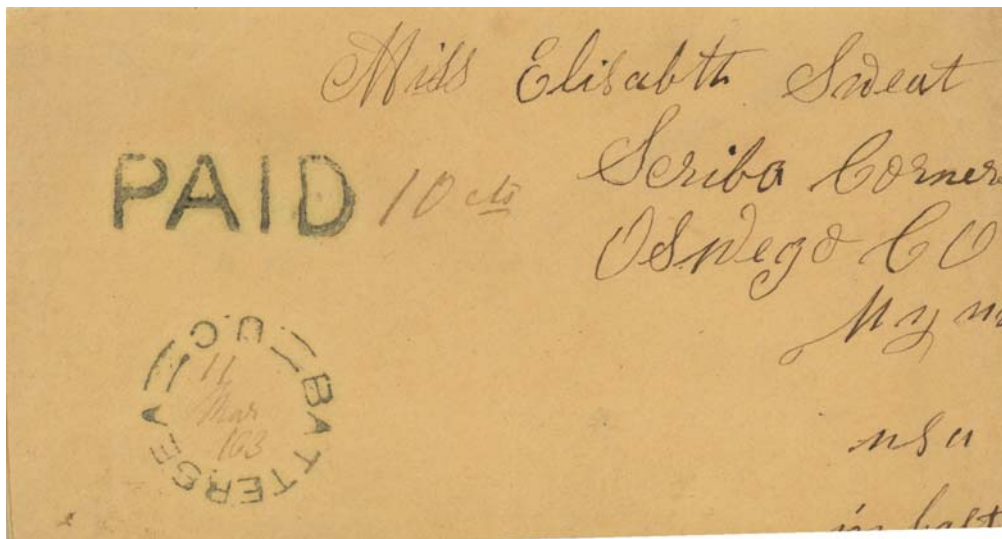 Miss Elisabth Sweat
Scriba Corner
Oswego CO
N y
PAID 10 cts
U.C.
BATTERSEA
11
Mar
163
in hast